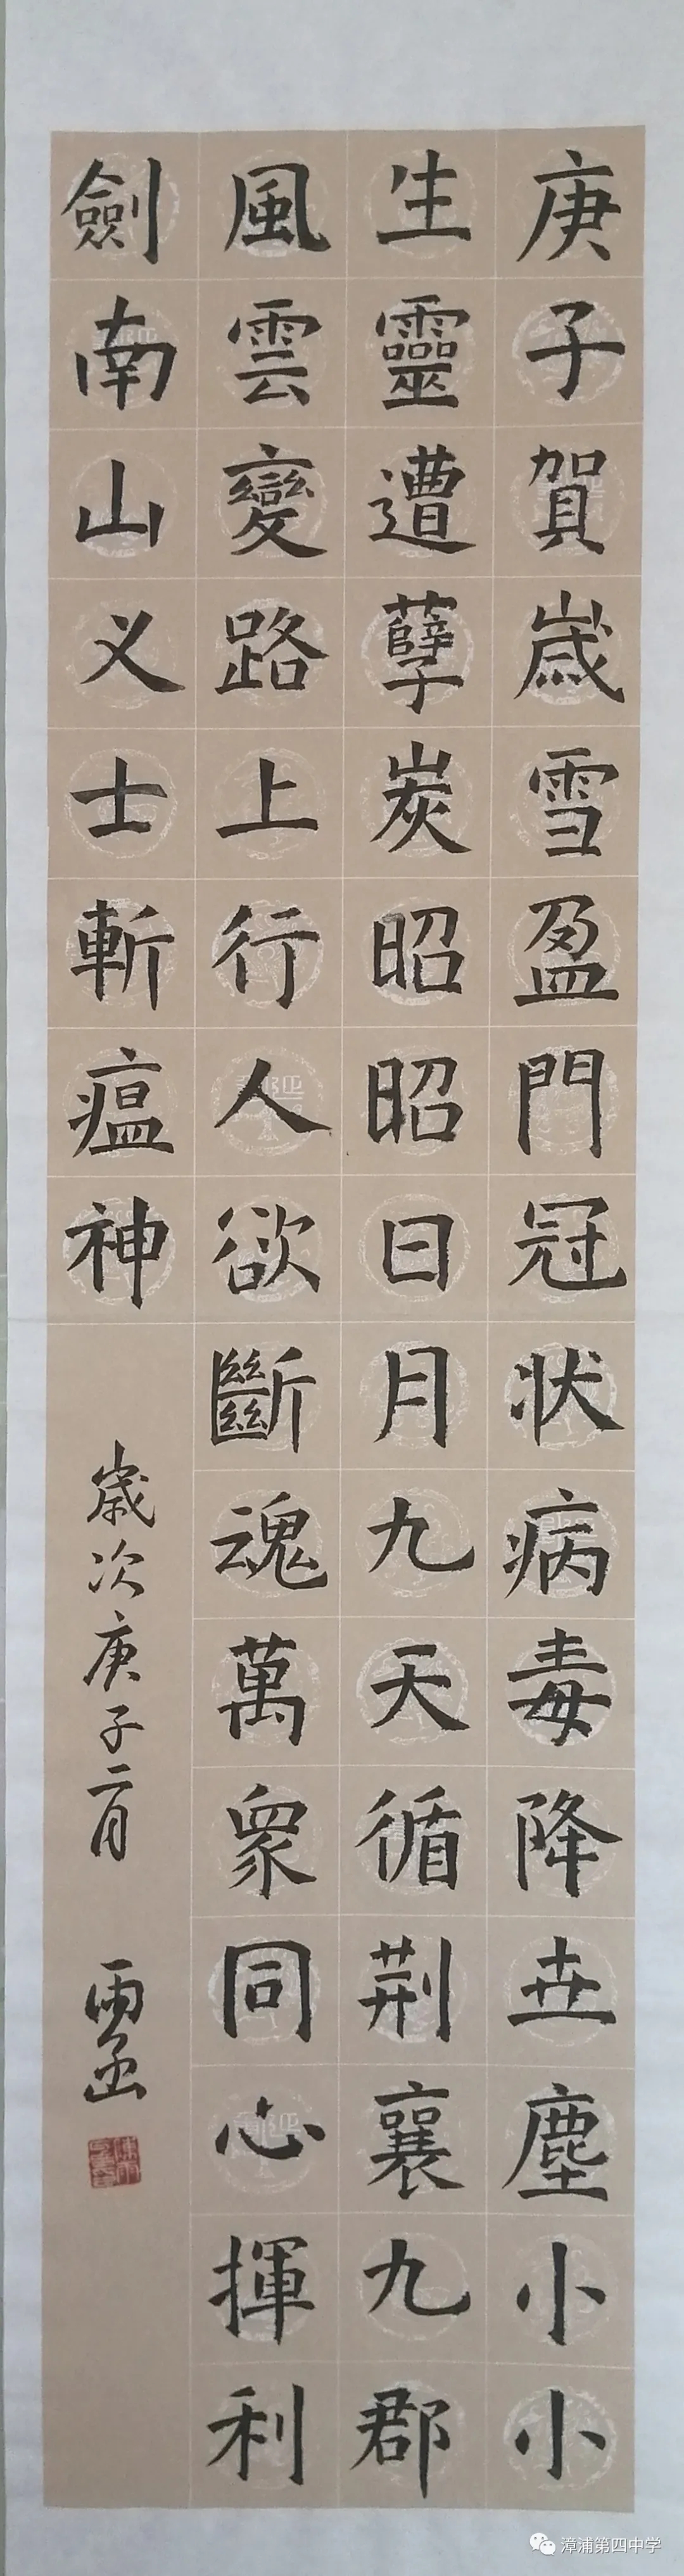 庚子賀歲雪盈門冠状病毒降世塵小小
生靈遭孽炭昭昭日月九天循荆襄九郡
風雲變路上行人欲斷魂萬衆同心揮利
劍南山义士斬瘟神
歲次庚子二月
漳浦第四中学